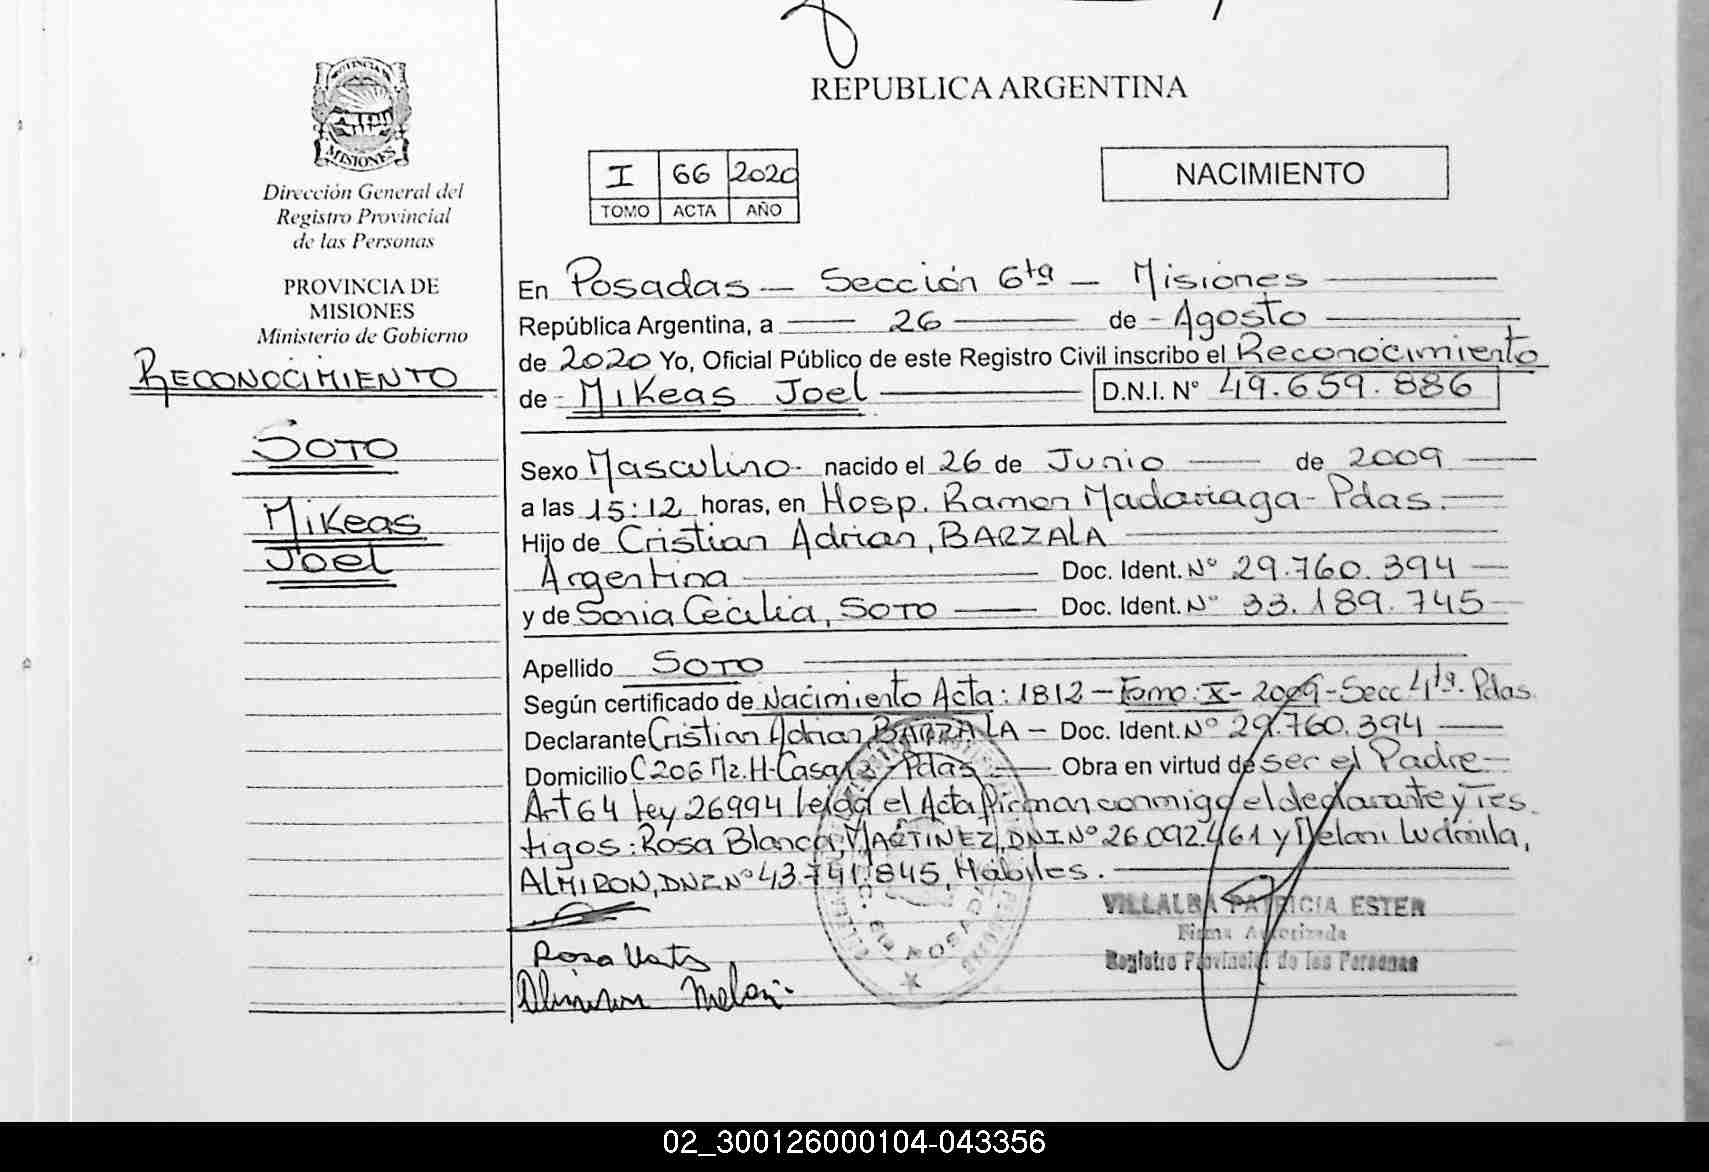 REPUBLICA ARGENTINA
PROVINCIA DE
MISIONES
Dirección General del
Registro Provincial
de las Personas
PROVINCIA DE
MISIONES
Ministerio de Gobierno
RECONOCIMIENTO
SOTO
Mikeas
Joel
I 66 2020
TOMO ACTA AÑO
NACIMIENTO
En Posadas - Sección 6ta - Misiones
República Argentina, a 26 de - Agosto
de 2020 Yo, Oficial Público de este Registro Civil inscribo el Reconocimiento
de - Mikeas Joel D.N.I. N° 49.659.886
Sexo Masculino - nacido el 26 de Junio de 2009
a las 15:12 horas, en Hosp. Ramon Madariaga - Pdas.
Hijo de Cristian Adrian, BARZALA
Argentina Doc. Ident. N° 29.760.394
y de Sonia Cecilia, SOTO Doc. Ident. N° 33.189.745
Apellido SOTO
Según certificado de Nacimiento Acta: 1812 - Tomo: X - 2009 - Secc 4ta. Pdas.
Declarante Cristian Adrian BARZALA - Doc. Ident. N° 29.760.394
Domicilio C206 Mz. H - Casa Pdas Obra en virtud de ser el Padre -
Art 64 Ley 26994 Leida el Acta firman conmigo el declarante y Tes
tigos: Rosa Blanca, MARTINEZ, DNI N° 26.092.461 y Melani Ludmila,
ALMIRON, DNI N° 43.741.845, Hábiles.
VILLALBA PATRICIA ESTER
Firma Autorizada
Registro Provincial de las Personas
Rosa
Almiron Melani
02_300126000104-043356